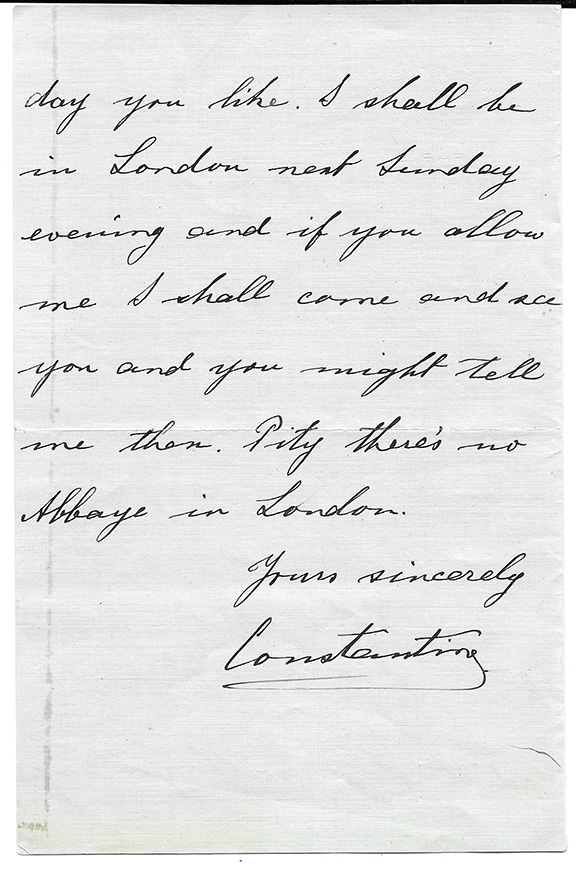 day you like. I shall be
in London next Sunday
evening and if you allow
me I shall come and see
you and you might tell
me then. Pity there's no
Abbaye in London.
Yours sincerely
Constantine